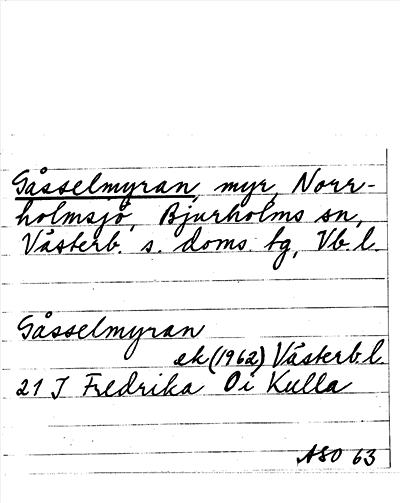 Gåsselmyran, myr, Norr-
holmsjö, Bjurholms sn,
Västerb. s. doms. tg, Vb. l.
Gåsselmyran
ek (1962) Västerb. l.
21 J Fredrika Öi Kulla
ASO 63